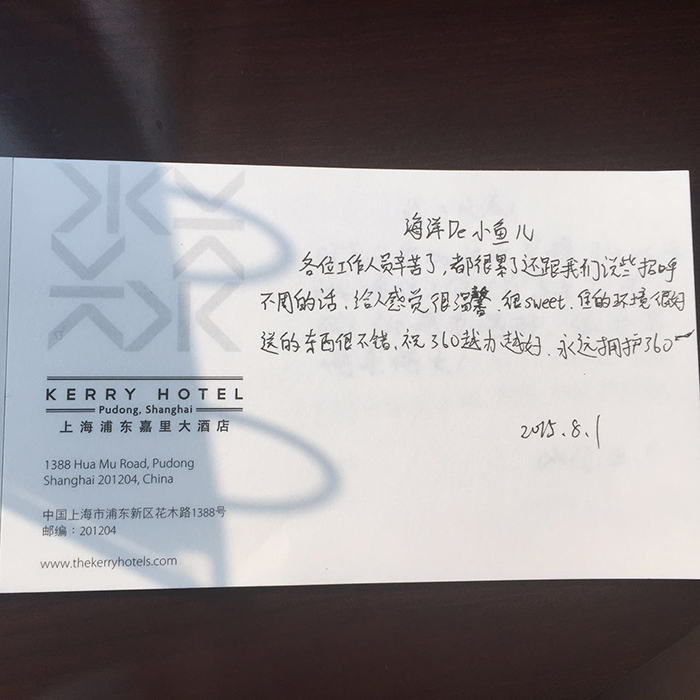 海洋De小鱼儿
各位工作人员辛苦了，都很累了还跟我们说些招呼
不周的话、给人感觉很温馨、很sweet、住的环境很好
送的东西很不错、祝360越办越好、永远拥护360
2015.8.1
KERRY HOTEL
Pudong, Shanghai
上海浦东嘉里大酒店
1388 Hua Mu Road, Pudong
Shanghai 201204, China
中国上海市浦东新区花木路1388号
邮编：201204
www.thekerryhotels.com